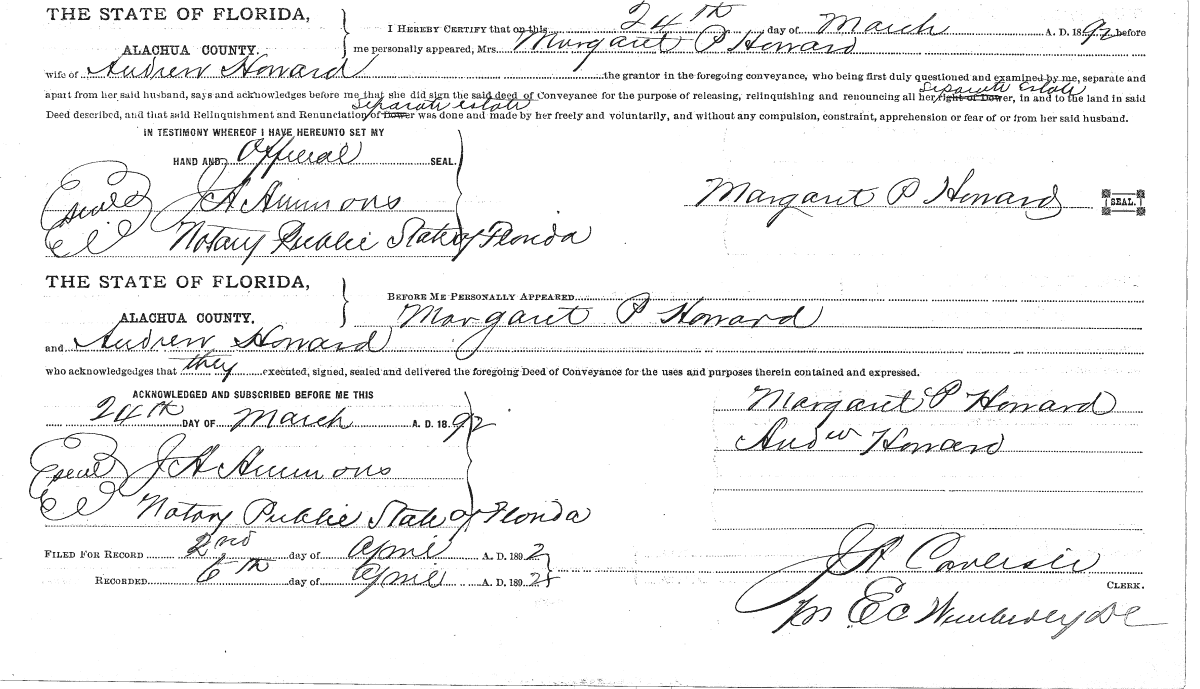 THE STATE OF FLORIDA,
ALACHUA COUNTY.
I HEREBY CERTIFY that on this 24th day of March A. D. 1892, before
me personally appeared, Mrs. Margaret P Howard
wife of Andrew Howard the grantor in the foregoing conveyance, who being first duly questioned and examined by me, separate and
separate estate
apart from her said husband, says and acknowledges before me that she did sign the said deed of Conveyance for the purpose of releasing, relinquishing and renouncing all her right of Dower, in and to the land in said
separate estate
Deed described, and that said Relinquishment and Renunciation of Dower was done and made by her freely and voluntarily, and without any compulsion, constraint, apprehension or fear of or from her said husband.
IN TESTIMONY WHEREOF I HAVE HEREUNTO SET MY
HAND AND Official SEAL.
seal J A Ammons
Notary Public State of Florida
Margaret P Howard SEAL.
THE STATE OF FLORIDA,
ALACHUA COUNTY.
BEFORE ME PERSONALLY APPEARED
Margaret P Howard
and Andrew Howard
who acknowledgedges that they executed, signed, sealed and delivered the foregoing Deed of Conveyance for the uses and purposes therein contained and expressed.
ACKNOWLEDGED AND SUBSCRIBED BEFORE ME THIS
24th DAY OF March A. D. 1892
seal J A Ammons
Notary Public State of Florida
Margaret P Howard
Andew Howard
FILED FOR RECORD 2nd day of April A. D. 1892
RECORDED 6th day of April A. D. 1892
J A
CLERK.
E C Wimberley DC